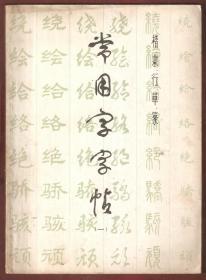 楷隶行草篆
常用字字帖
(一)
绕绘给络绝骄骇顽
绕绘给络绝骄骇顽
绕绘给络绝骄骇顽